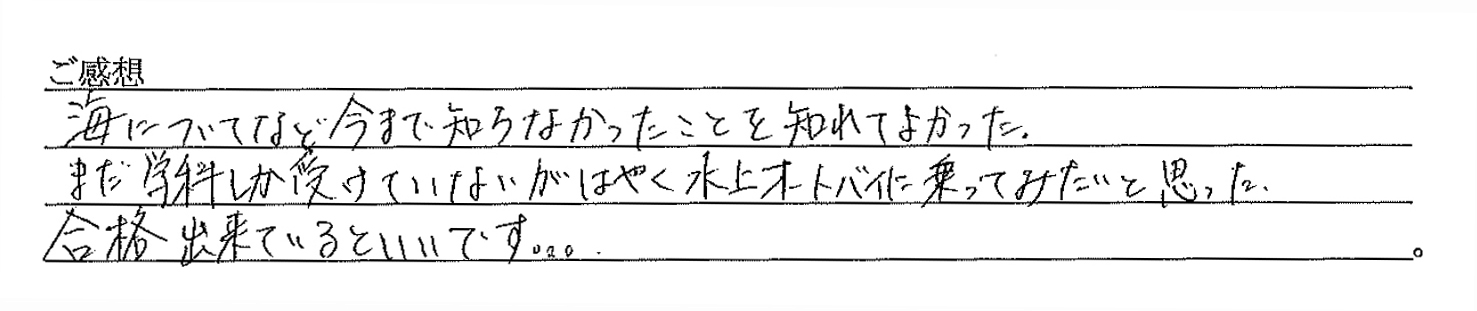 ご感想
海についてなど今まで知らなかったことを知れてよかった。
まだ学科しか受けていないがはやく水上オートバイに乗ってみたいと思った。
合格出来ているといいです。。。
。